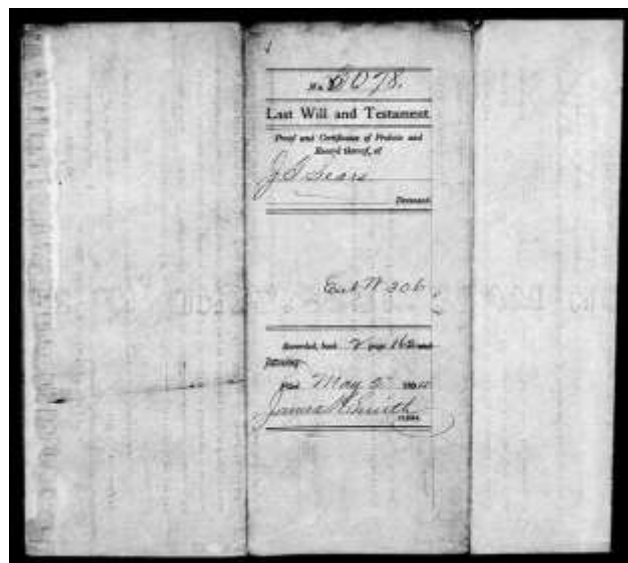 No. 6078.
Last Will and Testament
Proof and Certificate of Probate and
Record thereof, of
J S Sears
Deceased
Est N 306
Recorded, book V page 162 and
following
Filed May 2
James A Smith
CLERK.